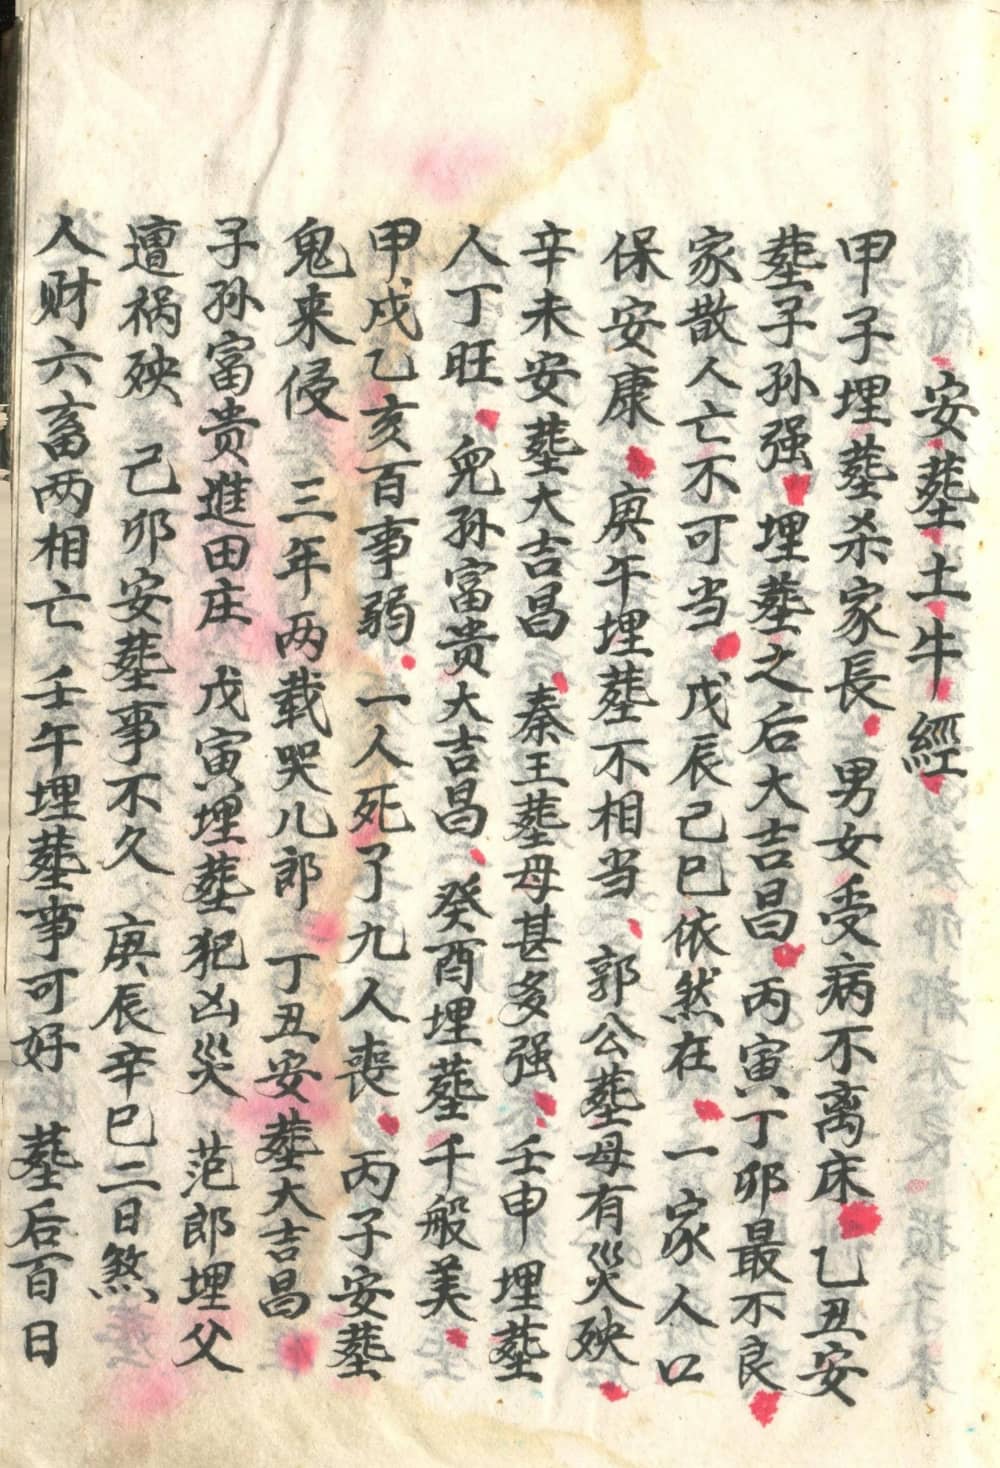 安塟土牛經
甲子埋塟杀家長男女受病不离床乙丑安
塟子孙强埋塟之后大吉昌丙寅丁卯最不良
家散人亡不可当戊辰己巳依然在一家人口
保安康庚午埋塟不相当郭公塟母有災殃
辛未安塟大吉昌秦王塟母甚多强壬申埋塟
人丁旺兒孙富贵大吉昌癸酉埋塟千般美
甲戍乙亥百事弱一人死了九人丧丙子安塟
鬼来侵三年两载哭儿郎丁丑安塟大吉昌
子孙富贵進田庄戊寅埋塟犯凶災范郎埋父
遭祸殃己卯安塟事不久庚辰辛巳二日煞
人财六畜两相亡壬午埋塟事可好塟后百日